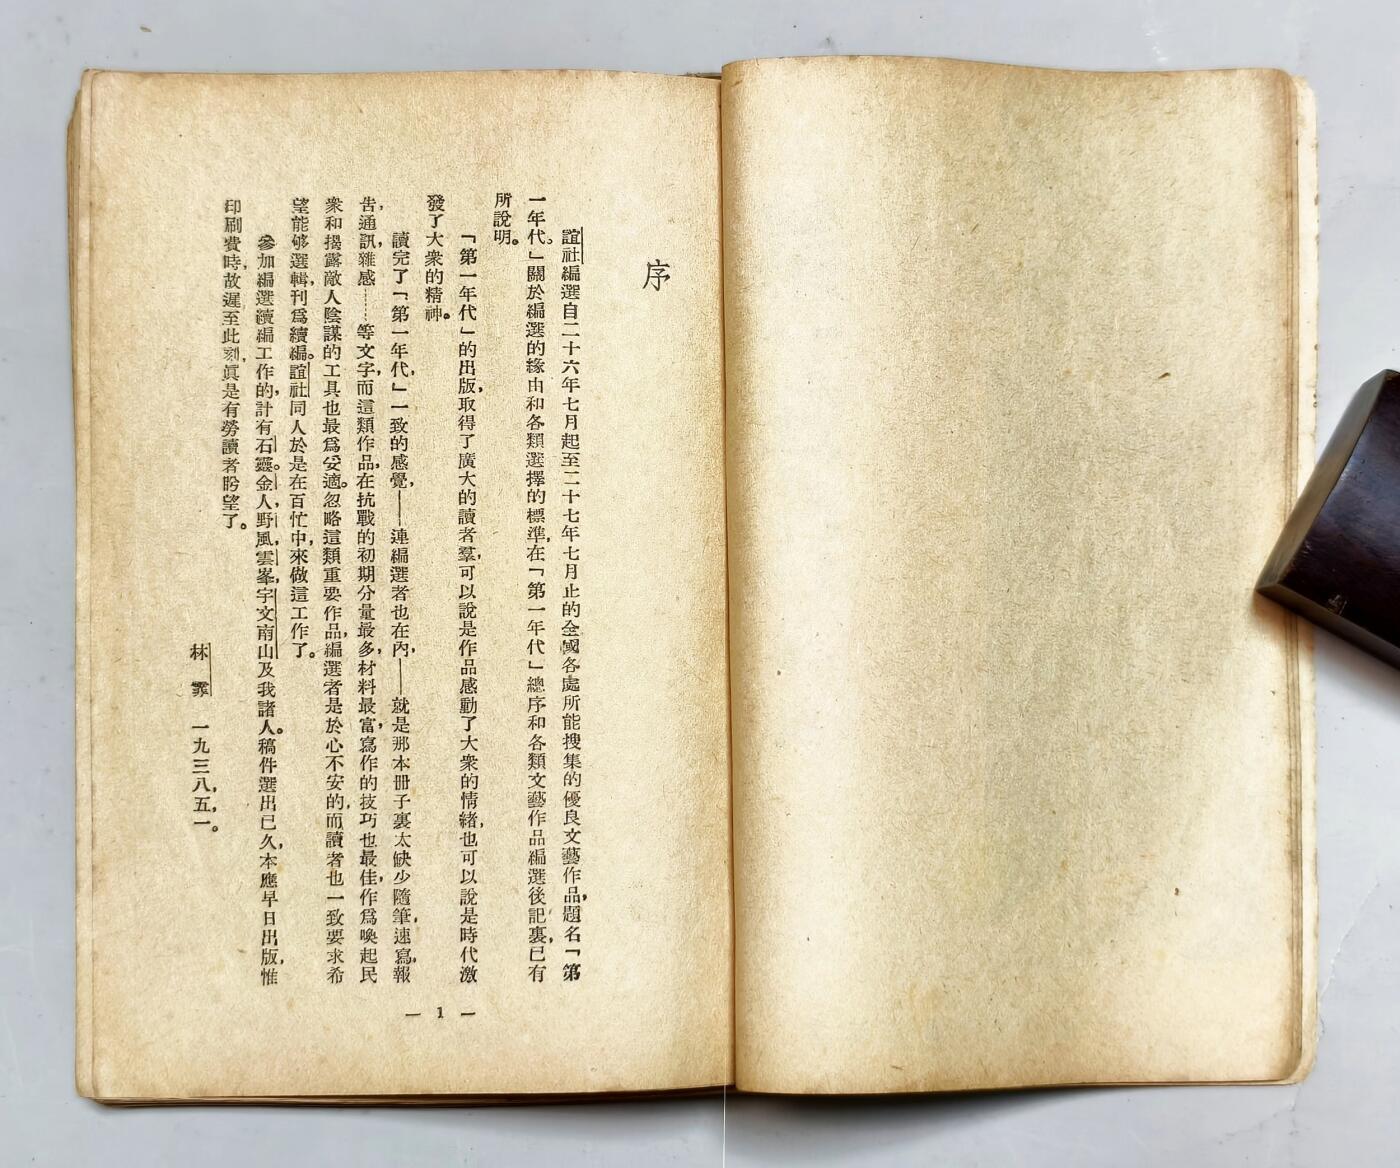 序
誼社編選自二十六年七月起至二十七年七月止的全國各處所能搜集的優良文藝作品，題名「第
一年代。」關於編選的緣由和各類選擇的標準，在「第一年代」總序和各類文藝作品編選後記裏，已有
所說明。
「第一年代」的出版，取得了廣大的讀者羣，可以說是作品感動了大衆的情緒，也可以說是時代激
發了大衆的精神。
讀完了「第一年代，」一致的感覺，——連編選者也在內，——就是那本冊子裏太缺少隨筆，速寫，報
告，通訊，雜感……等文字，而這類作品，在抗戰的初期分量最多，材料最富，寫作的技巧也最佳，作爲喚起民
衆和揭露敵人陰謀的工具也最爲妥適。忽略這類重要作品，編選者是於心不安的，而讀者也一致要求希
望能够選輯，刊爲續編。誼社同人於是在百忙中，來做這工作了。
參加編選續編工作的，計有石靈。金人，野風，雲峯，宇文南山及我諸人。稿件選出已久，本應早日出版，惟
印刷費時，故遲至此刻，眞是有勞讀者盼望了。
林霏 一九三八，五，一。
— 1 —